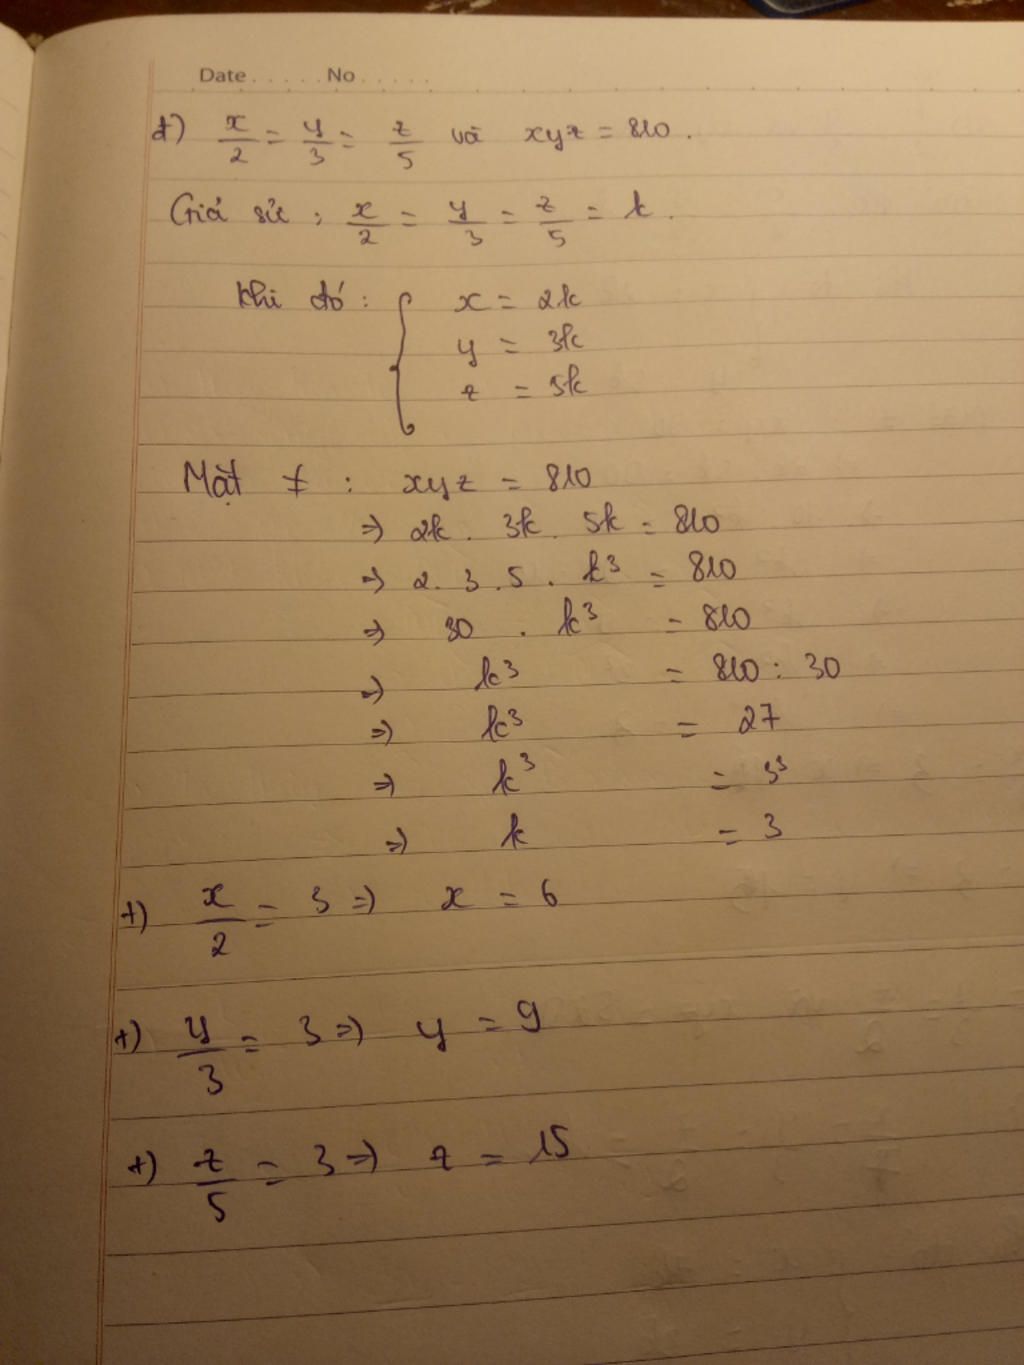 Date..... No.....
d) x/2 = y/3 = z/5 và xyz = 810.
Giả sử : x/2 = y/3 = z/5 = k.
Khi đó : { x = 2k
y = 3k
z = 5k
Mặt ≠ : xyz = 810
=> 2k . 3k . 5k = 810
=> 2 . 3 . 5 . k³ = 810
=> 30 . k³ = 810
=> k³ = 810 : 30
=> k³ = 27
=> k³ = 3³
=> k = 3
+) x/2 = 3 => x = 6
+) y/3 = 3 => y = 9
+) z/5 = 3 => z = 15